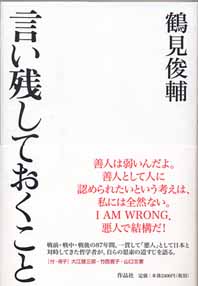 鶴見俊輔
言い残しておくこと
善人は弱いんだよ。
善人として人に
認められたいという考えは、
私には全然ない。
I AM WRONG.
悪人で結構だ!
戦前・戦中・戦後の87年間、一貫して「悪人」として日本と
対峙してきた哲学者が、自らの思索の道すじを語る。
作品社